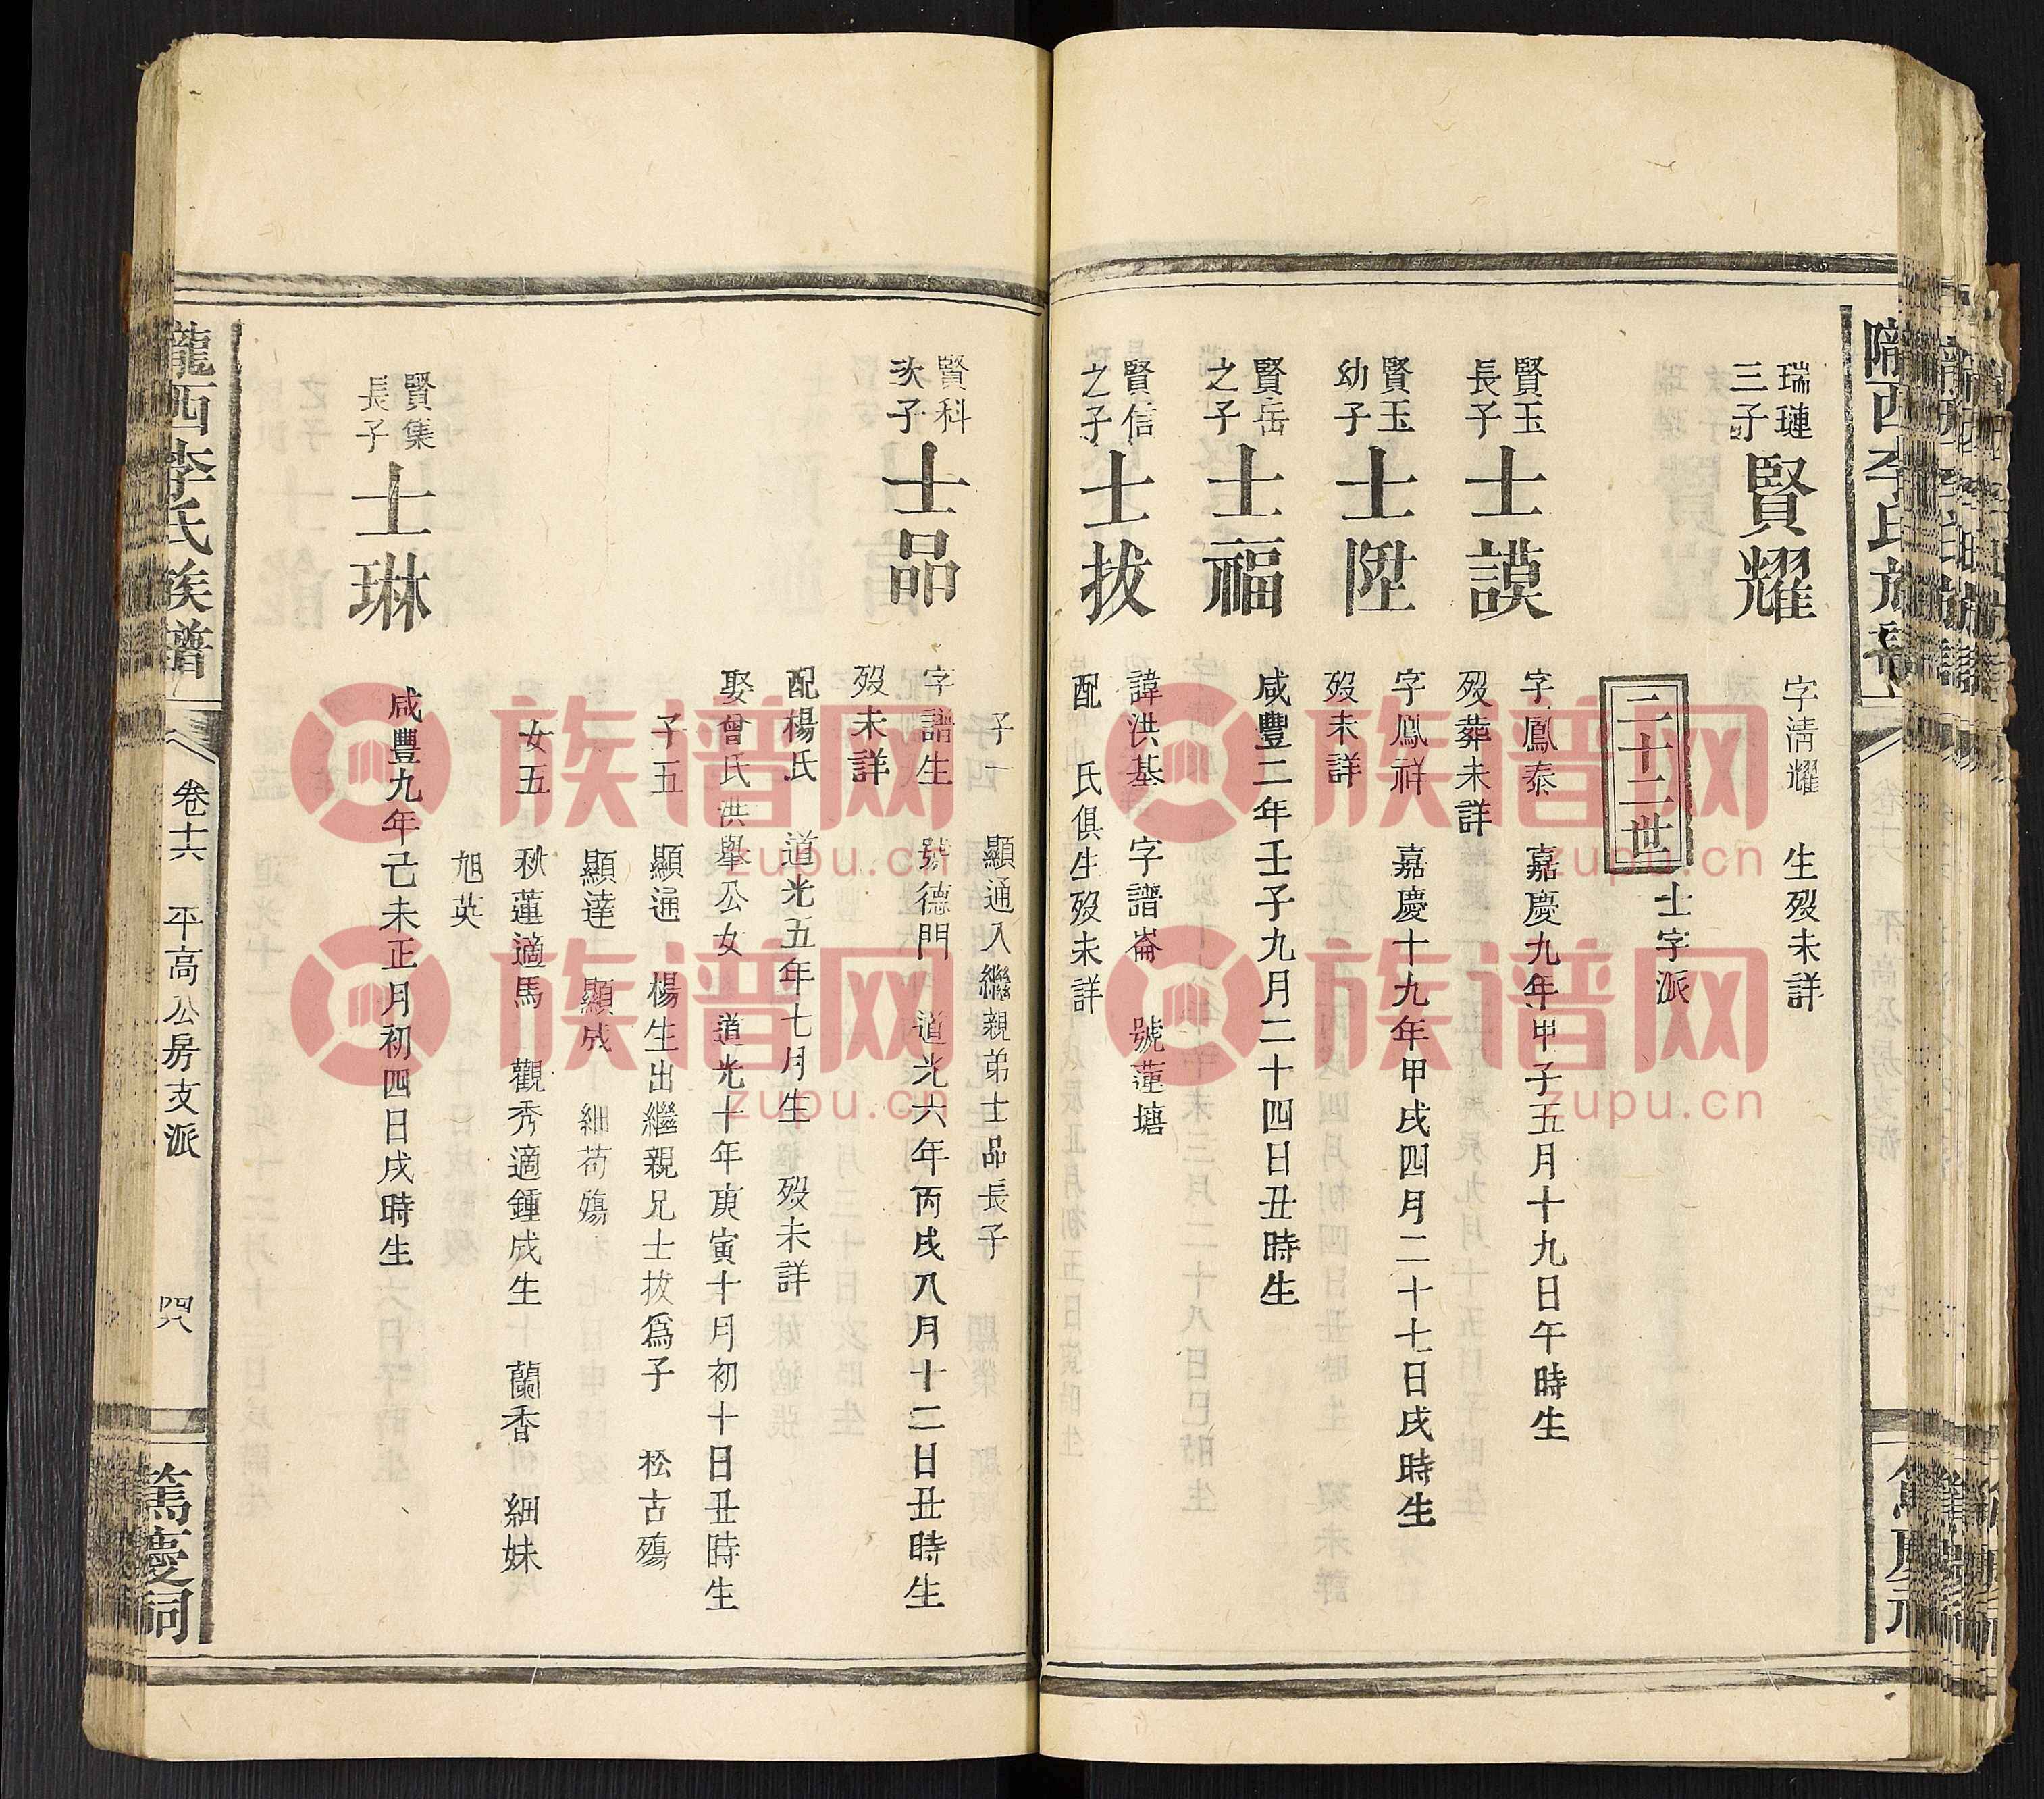 瑞璉
三子
賢耀
字清耀 生殁未詳
二十二世
士字派
賢玉
長子
士謨
字鳳泰 嘉慶九年甲子五月十九日午時生
殁葬未詳
賢玉
幼子
士陞
字鳳祥 嘉慶十九年甲戌四月二十七日戌時生
殁未詳
賢岳
之子
士福
咸豐二年壬子九月二十四日丑時生
賢信
之子
士拔
諱洪基 字譜崙 號蓮塘
配 氏俱生殁未詳
子一 顯通入繼親弟士品長子
賢科
次子
士品
字譜生 號德門 道光六年丙戌八月十二日丑時生
殁未詳
配楊氏 道光五年七月生 殁未詳
娶曾氏洪舉公女 道光十年庚寅十月初十日丑時生
子五 顯通 楊生出繼親兄士拔爲子 松古殤
顯達 顯成 細苟殤
女五 秋蓮適馬 觀秀適鍾成生 蘭香 細妹
旭英
賢集
長子
士琳
咸豐九年己未正月初四日戌時生
隴西李氏族譜
卷十六 平高公房支派
四八
篤慶祠
族谱网
zupu.cn
族谱网
zupu.cn
族谱网
zupu.cn
族谱网
zupu.cn